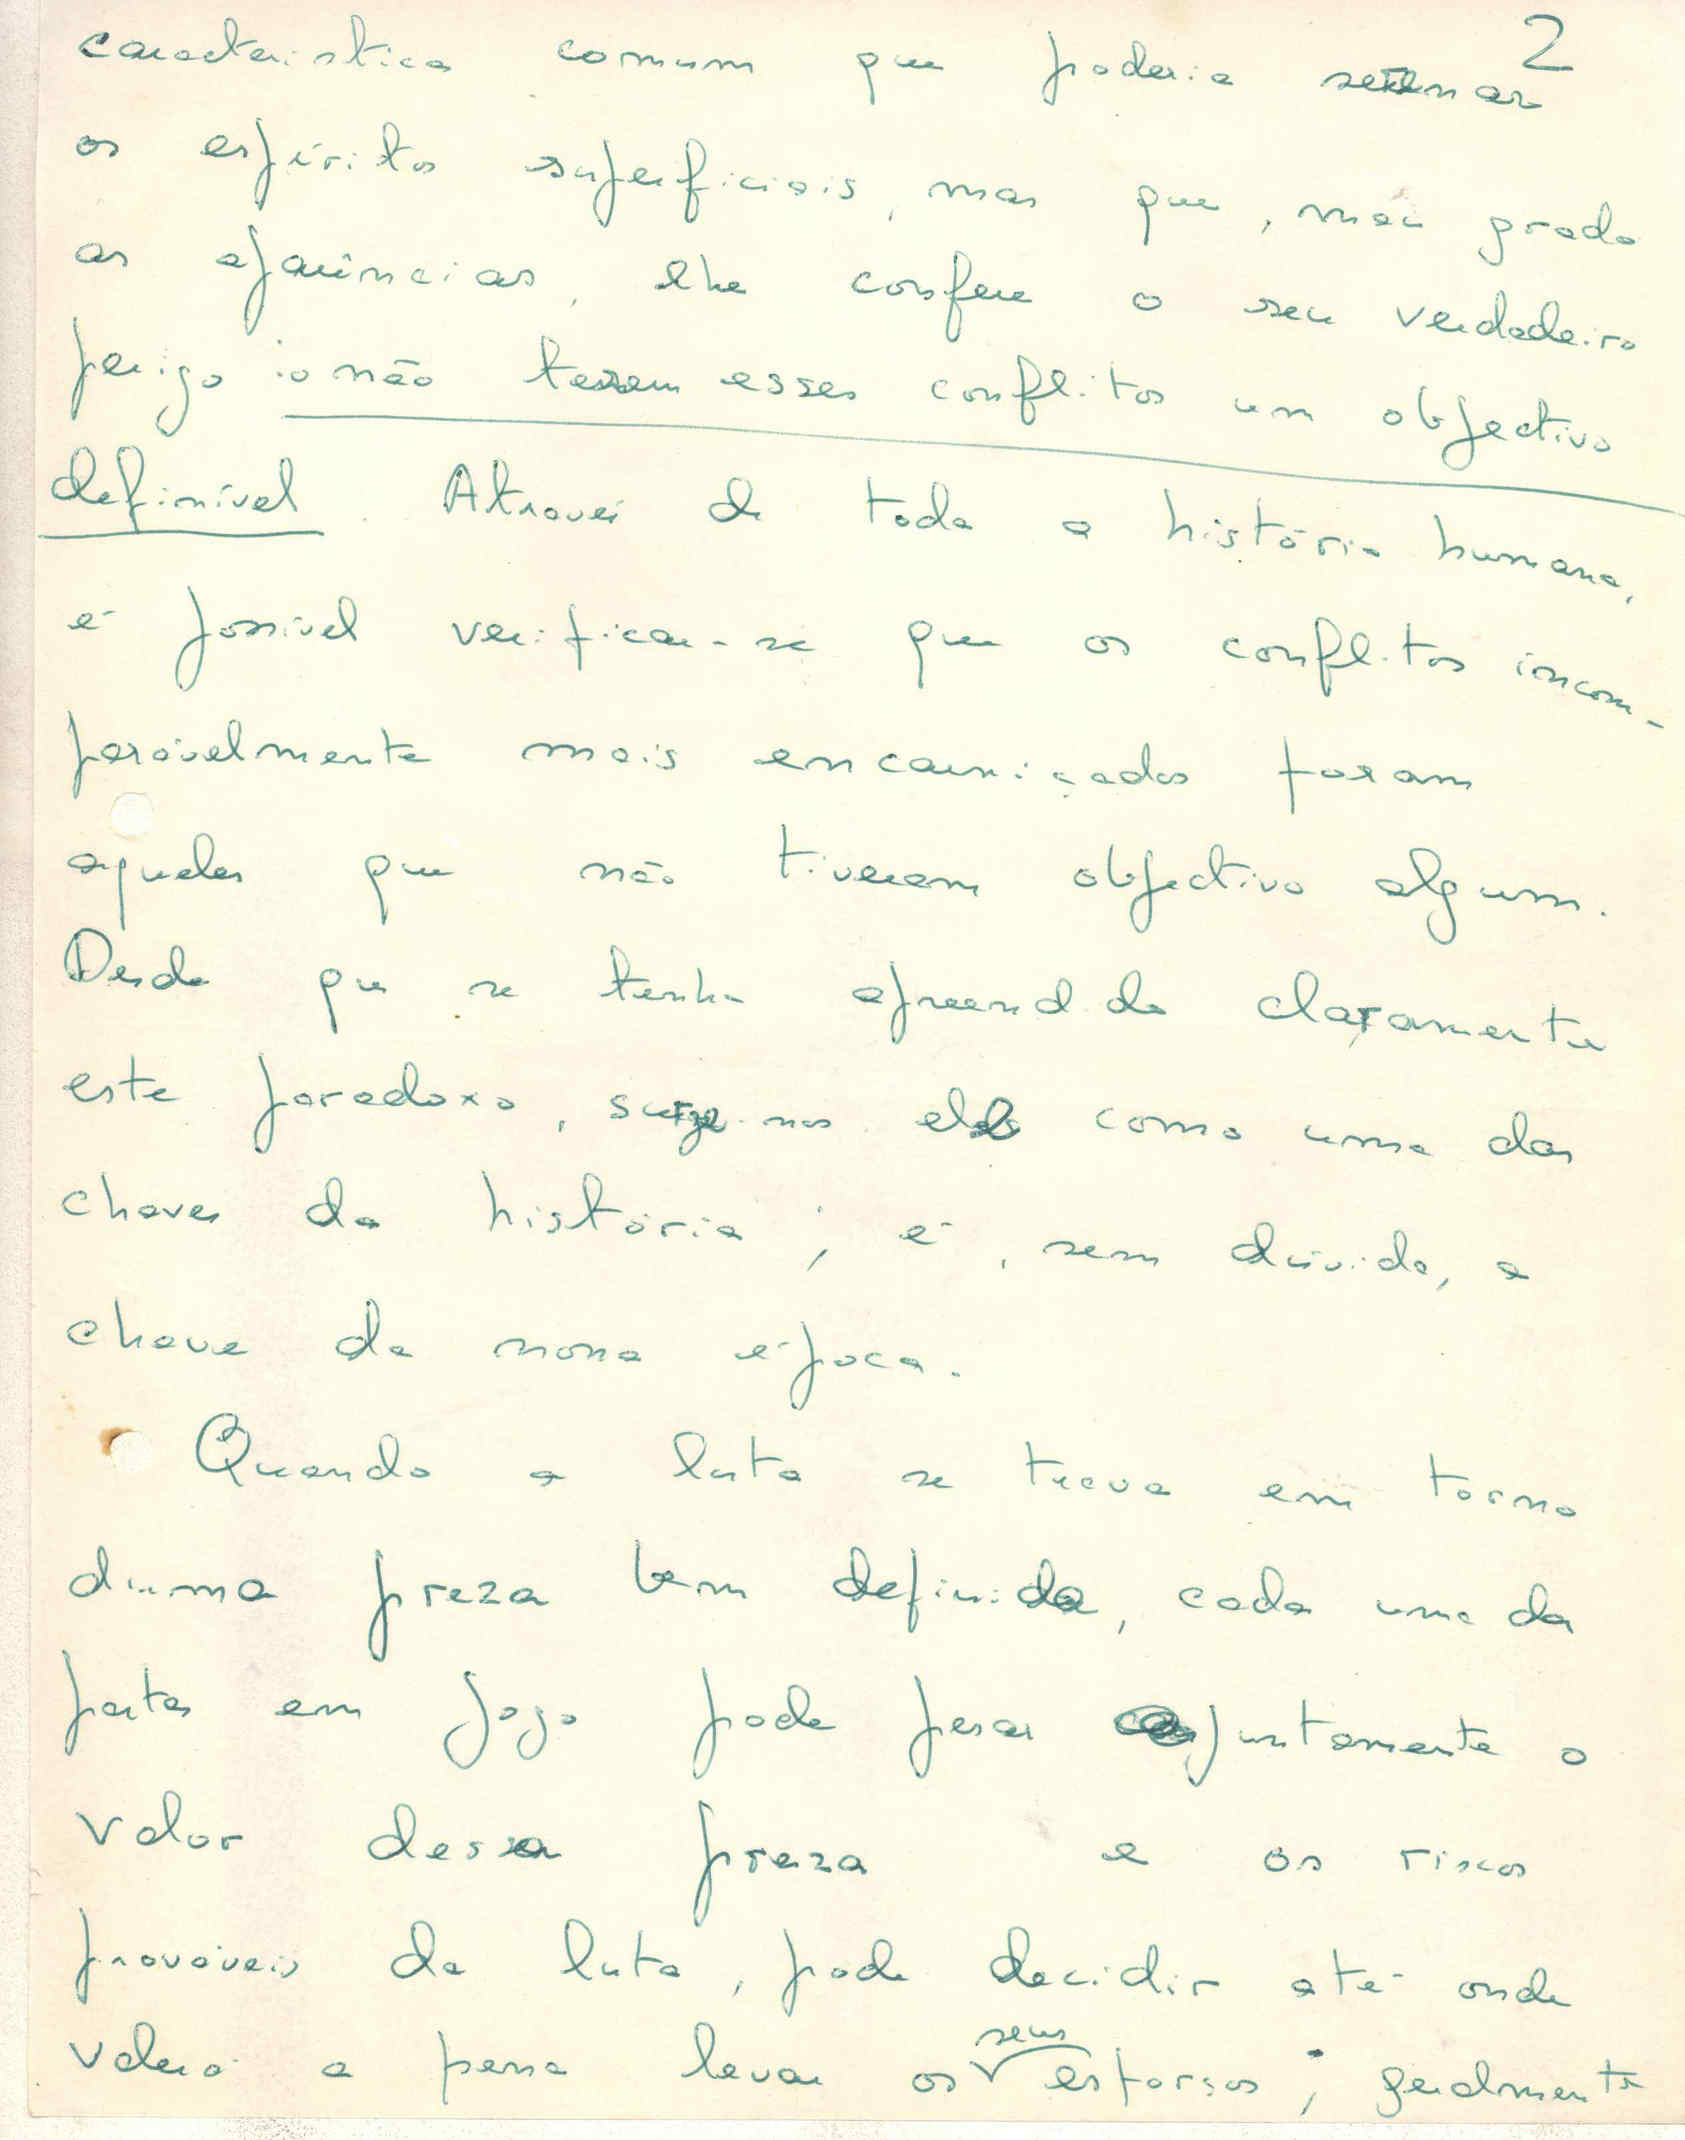 2
característica comum que poderia serenar
os espíritos superficiais, mas que, mau grado
as aparências, lhe confere o seu verdadeiro
perigo: o não terem esses conflitos um objectivo
definível. Através de toda a história humana,
é possível verificar-se que os conflitos incom-
paràvelmente mais encarniçados foram
aqueles que não tiveram objectivo algum.
Desde que se tenha apreendido claramente
este paradoxo, surge-nos ele como uma das
chaves da história; é, sem dúvida, a
chave da nossa época.
Quando a luta se trava em torno
duma presa bem definida, cada uma das
partes em jogo pode pesar juntamente o
valor dessa presa e os riscos
prováveis da luta, pode decidir até onde
valerá a pena levar os seus esforços; geralmente